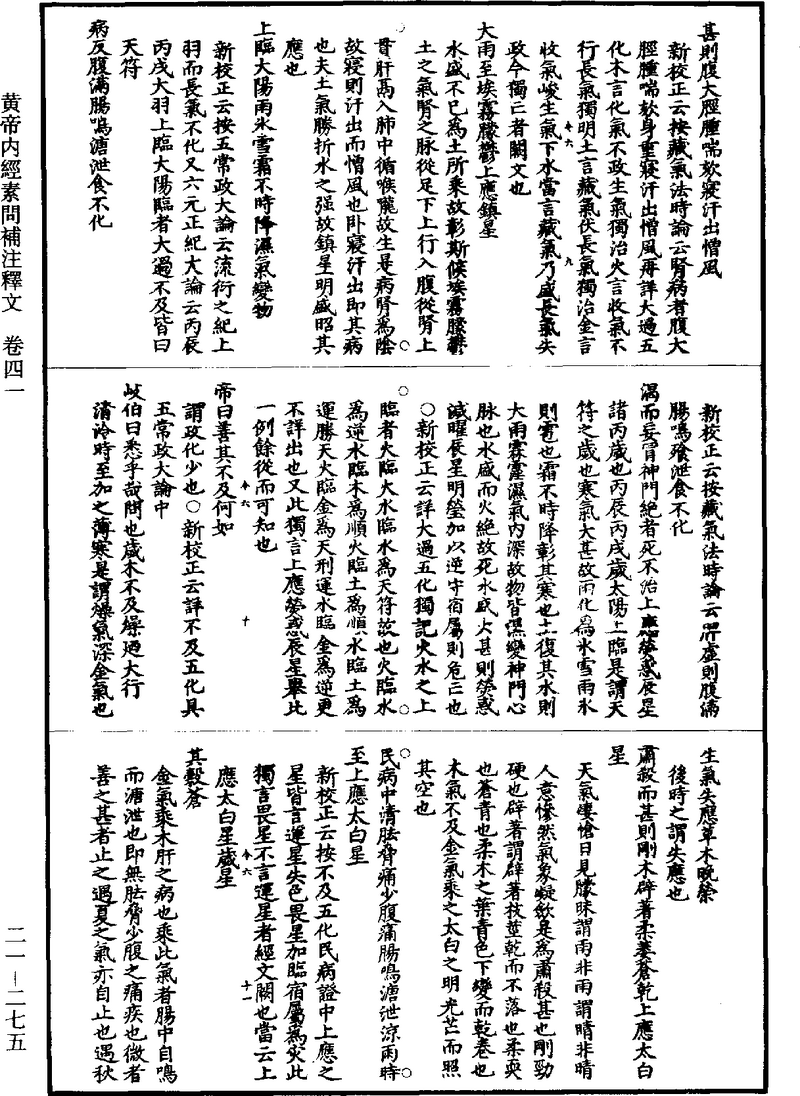 甚則腹大脛腫喘欬寢汗出憎風
新校正云按藏氣法時論云腎病者腹大
脛腫喘欬身重寢汗出憎風再詳大過五
化木言化氣不政生氣獨治火言收氣不
行長氣獨明土言藏氣伏長氣獨治金言
收氣峻生氣下水當言藏氣乃盛長氣失
政今獨亡者闕文也
大雨至埃霧朦鬱上應鎮星
水盛不已為土所乘故彰斯候埃霧朦鬱
土之氣腎之脉從足下上行入腹從腎上
貫肝鬲入肺中循喉嚨故生是病腎為陰
故寢則汗出而憎風也卧寢汗出即其病
也夫土氣勝折水之强故鎮星明盛昭其
應也
上臨大陽雨氷雪霜不時降濕氣變物
新校正云按五常政大論云流衍之紀上
羽而長氣不化又六元正紀大論云丙辰
丙戌大羽上臨大陽臨者大過不及皆曰
天符
病反腹滿腸鳴溏泄食不化
新校正云按藏氣法時論云脾虛則腹滿
腸鳴飧泄食不化
渴而妄冒神門絕者死不治上應熒惑辰星
諸丙歲也丙辰丙戌歲太陽上臨是謂天
符之歲也寒氣大甚故雨化為氷雪雨氷
則雹也霜不時降彰其寒也土復其水則
大雨霖霪濕氣內深故物皆濕變神門心
脉也水盛而火絕故死水盛火甚則熒惑
減曜辰星明瑩加以逆守宿屬則危亡也
○新校正云詳大過五化獨記火水之上
臨者火臨火水臨水為天符故也火臨水
為逆水臨木為順火臨土為順水臨土為
運勝天火臨金為天刑運水臨金為逆更
不詳出也又此獨言上應熒惑辰星舉此
一例餘從而可知也
帝曰善其不及何如
謂政化少也○新校正云詳不及五化具
五常政大論中
岐伯曰悉乎哉問也歲木不及燥迺大行
清泠時至加之薄寒是謂燥氣深金氣也
生氣失應草木晚榮
後時之謂失應也
肅殺而甚則剛木辟著柔萎蒼乾上應太白
星
天氣凄愴日見朦昧謂雨非雨謂晴非晴
人意慘然氣象凝斂是為肅殺甚也剛勁
硬也辟著謂辟著枝莖乾而不落也柔耎
也蒼青也柔木之葉青色不變而乾卷也
木氣不及金氣乘之太白之明光芒而照
其空也
民病中清胠脅痛少腹痛腸鳴溏泄涼雨時
至上應太白星
新校正云按不及五化民病證中上應之
星皆言運星失色畏星加臨宿屬為災此
獨言畏星不言運星者經文闕也當云上
應太白星歲星
其穀蒼
金氣乘木肝之病也乘此氣者腸中自鳴
而溏泄也即無胠脅少腹之痛疾也微者
善之甚者止之遇夏之氣亦自止也遇秋
黃帝內經素問補注釋文 卷四一
二一—二七五